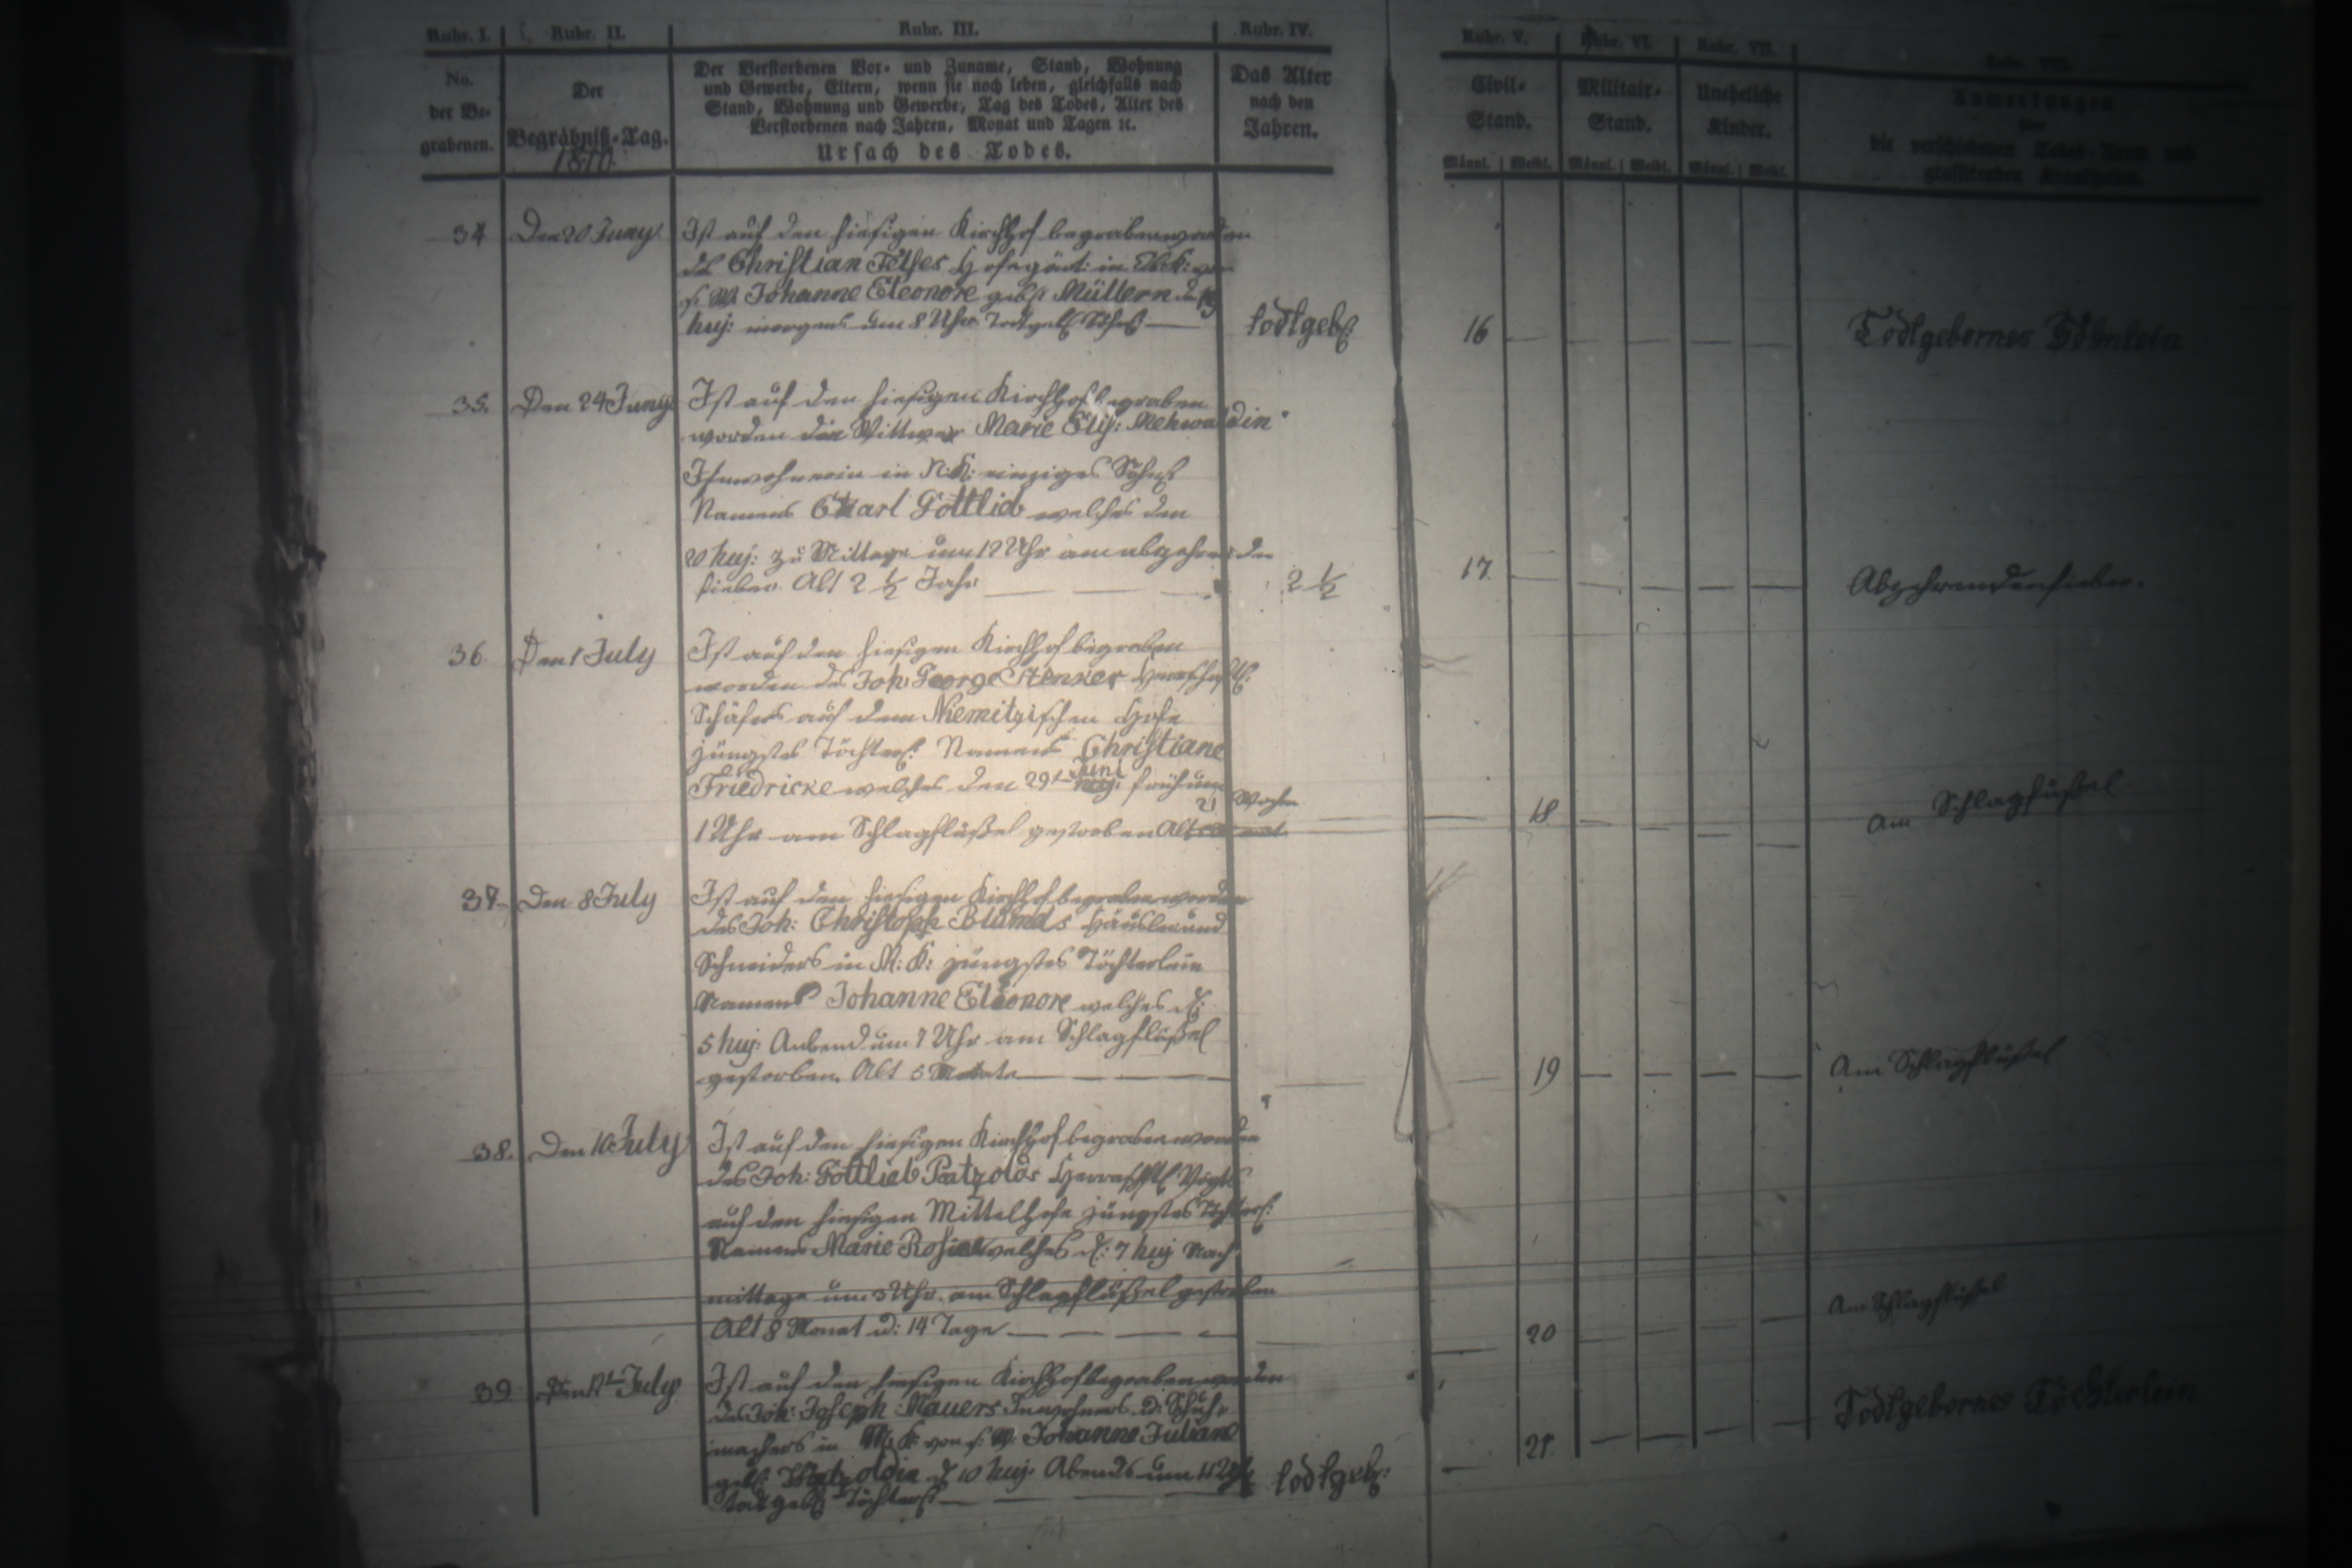 Rubr. I. Rubr. II. Rubr. III. Rubr. IV. Rubr. V. Rubr. VI. Rubr. VII.
No. der Begrabenen.
Der Begräbniß-Tag.
1810
Der Verstorbenen Vor- und Zuname, Stand, Wohnung
und Gewerbe, Eltern, wenn sie noch leben, gleichfalls nach
Stand, Wohnung und Gewerbe, Tag des Todes, Alter des
Verstorbenen nach Jahren, Monat und Tagen ꝛc.
Ursach des Todes.
Das Alter
nach den
Jahren.
Civil-
Stand.
Militair-
Stand.
Uneheliche
Kinder.
Männl. Weibl. Männl. Weibl. Männl. Weibl.
Anmerkungen
die verschiedenen Todes-Arten und
grassirenden Krankheiten.
34 Den 20 Juny
Ist auf den hiesigen Kirchhof begraben worden
des Christian Hofegärt: in
Johanne Eleonore geb: Müllern
huj: morgens um 8 Uhr Todtgeb: Söhnl
todtgeb: 16 Todtgebornes Söhnlein
35. Den 24 Juny
Ist auf den hiesigen Kirchhof begraben
worden der Wittwe Marie Elis: Mehwaldin
Inwohnerin in N: K: einziges Söhnl
Namens Carl Gottlieb welches den
20 huj: zu Mittage um 12 Uhr am abzehrenden
fieber. Alt 2 ½ Jahr
2 ½ 17. Abzehrendenfieber.
36 Den 1 July
Ist auf den hiesigen Kirchhof begraben
worden des Joh: George Herrschaftl:
Schäfers auf dem Niemitzischen Hofe
jüngstes Töchterl: Namens Christiane
Friedricke welches den 29t Juni früh um
1 Uhr am Schlagflüßel gestorben Alt 21 Wochen
18. Am Schlagflüßel
37. Den 8 July
Ist auf den hiesigen Kirchhof begraben worden
des Joh: Christoph Blümels Häusler und
Schneiders in M: K: jüngstes Töchterlein
Namens Johanne Eleonore welches d:
5 huj: Aubend um 7 Uhr am Schlagflüßel
gestorben. Alt 5 Monate
19 Am Schlagflüßel
38. Den 10 July
Ist auf den hiesigen Kirchhof begraben worden
des Joh: Gottlieb Patzolds Herrschftl Vogts
auf den hiesigen Mittelhofe jüngstes Töchterl:
Namens Marie Rosine welches d: 7 huj Nach
mittage um 3 Uhr am Schlagflüßel gestorben
Alt 8 Monat u: 14 Tage
20 Am Schlagflüßel
39 July
Ist auf den hiesigen Kirchhof begraben worden
des Joh: Joseph Mauers Inwohners u: Schuh-
machers in M: K: von s: W: Johanne Juliane
geb: d 10 huj: Abends um 11 Uhr
todtgeb: Töchterl
todtgeb: 21. Todtgebornes Töchterlein